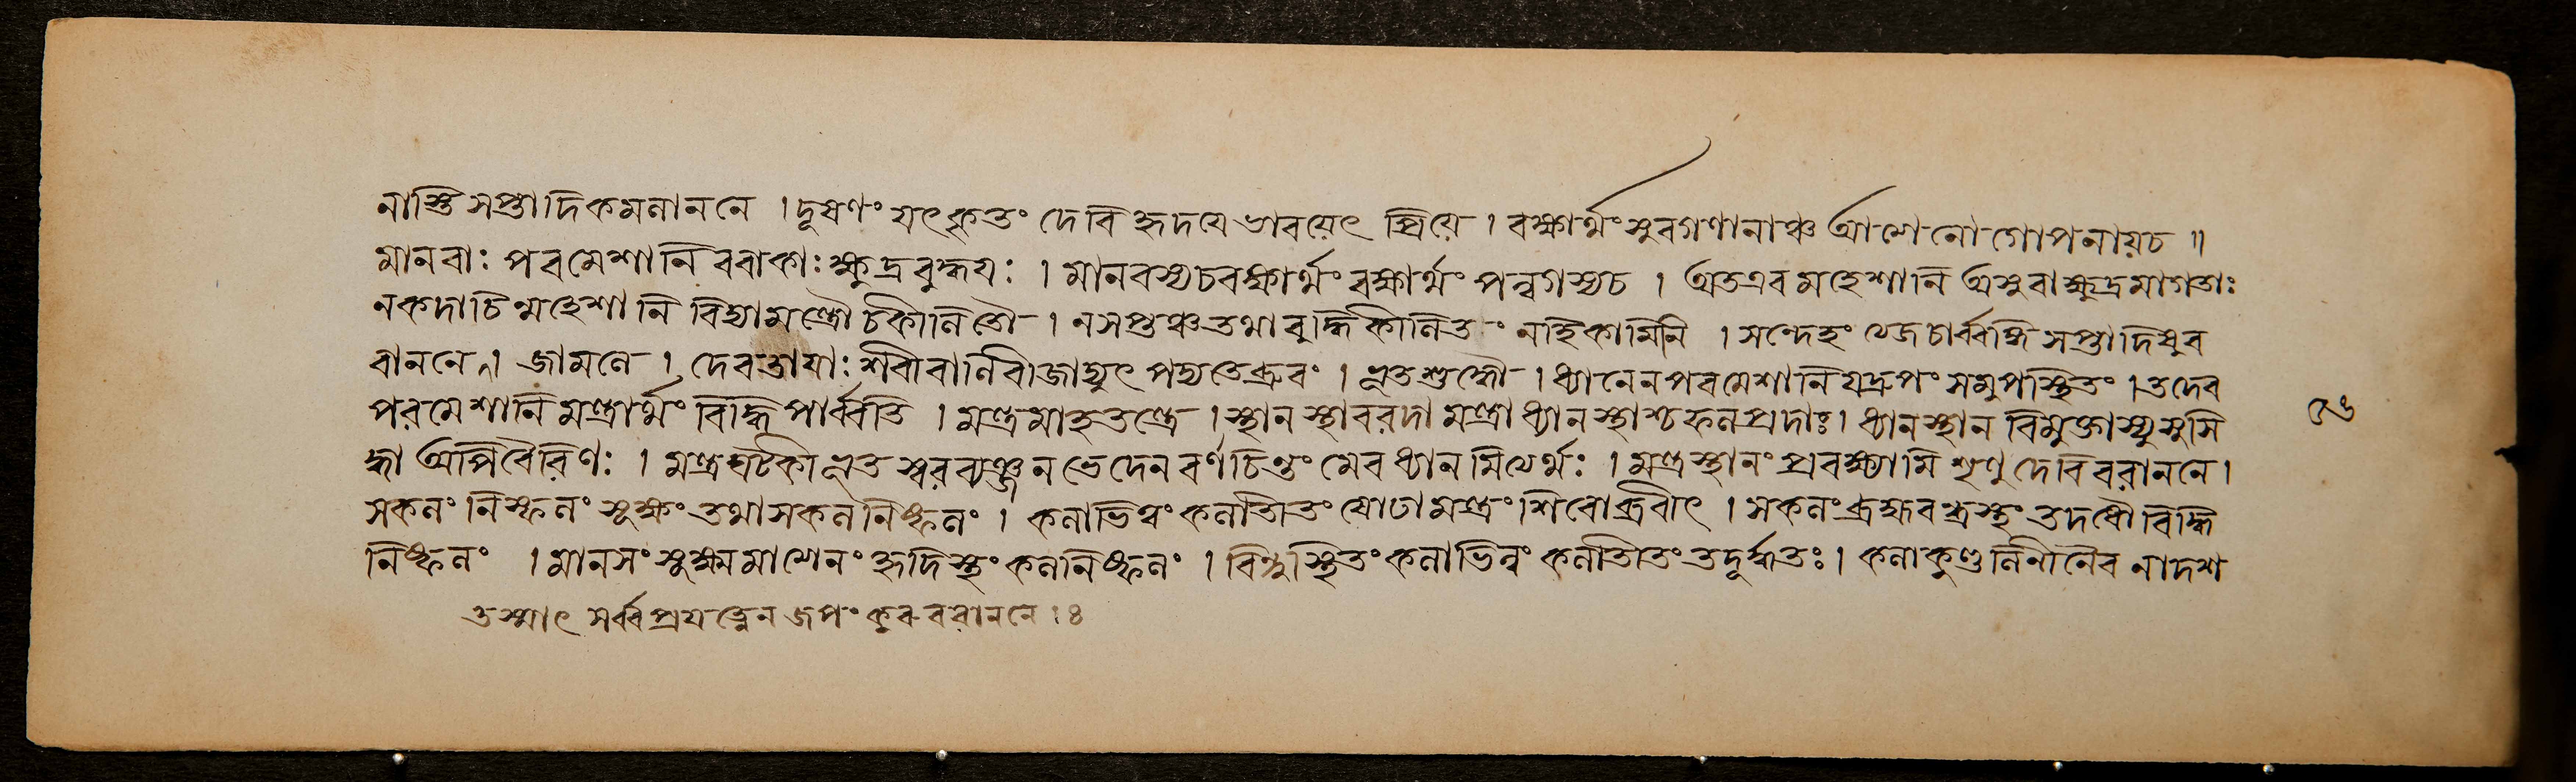 নাস্তি সপ্তাদিকমলাননে । দূষণং যৎকৃতং দেবি হৃদয়ে ভাবয়েৎ প্রিয়ে । ৰক্ষার্থং সুৰগণানাঞ্চ গোপনায়চ ॥
মানবাঃ পৰমেশানি ববাকাঃ ক্ষুদ্রবুদ্ধয়ঃ । মানবস্যচৰক্ষার্থং ৰক্ষার্থং পন্নগস্যচ । অতএব মহেশানি অসুৰাক্ষুদ্রমাগতাঃ
নকদাচিন্মহেশানি বিদ্যামন্ত্রৌ চকীলিতৌ । নসপ্তঞ্চতথাবুদ্ধি কীলিতং নহিকামিনি । সন্দেহং ত্যেজচার্ব্বঙ্গি সপ্তাদিষুব
ৰাননে । জামলে । দেবতায়াঃ শৰীৰাণি বীজাদ্যুৎ পদ্যতেধ্রুবং । ভূতশুদ্ধৌ । ধ্যানেনপৰমেশানি যদ্রুপং সমুপস্থিতং । তদেব
পৰমেশানি মন্ত্রার্থং বিদ্ধি পার্ব্বতি । মন্ত্রমাহতন্ত্রে । স্থানস্থাবরদা মন্ত্রা ধ্যানস্থাশ্চফলপ্রদাঃ । ধ্যানস্থান বিমুক্তাস্যুসুসি
দ্ধা অপিবৈরিণঃ । মন্ত্রঘটকীভূত স্বরব্যঞ্জন ভেদেন বর্ণচিন্তং মেব ধ্যানমিত্যর্থঃ । মন্ত্রস্থানং প্রবক্ষ্যামি শৃণু দেবি বরাননে ।
সকলং নিস্কলং সূক্ষ্মং তথাসকলনিষ্কলং । কলাভিন্নং কলাতীতং ষোঢামন্ত্রং শিবোব্রবীৎ । সকলং ব্রহ্মৰন্ধ্রস্থং তদধৌ বিদ্ধি
নিষ্কলং । মানসং সূক্ষ্মমাখ্যেলং হৃদিস্থং কলনিষ্কলং । বিন্দুস্থিতং কলাভিন্নং কলাতীতং তদূর্দ্ধতঃ । কলাকুণ্ডলিনীনৈব নাদশ
তস্মাৎ সর্ব্বপ্রযত্নেন জপং কুৰু বৰাননে ।৪